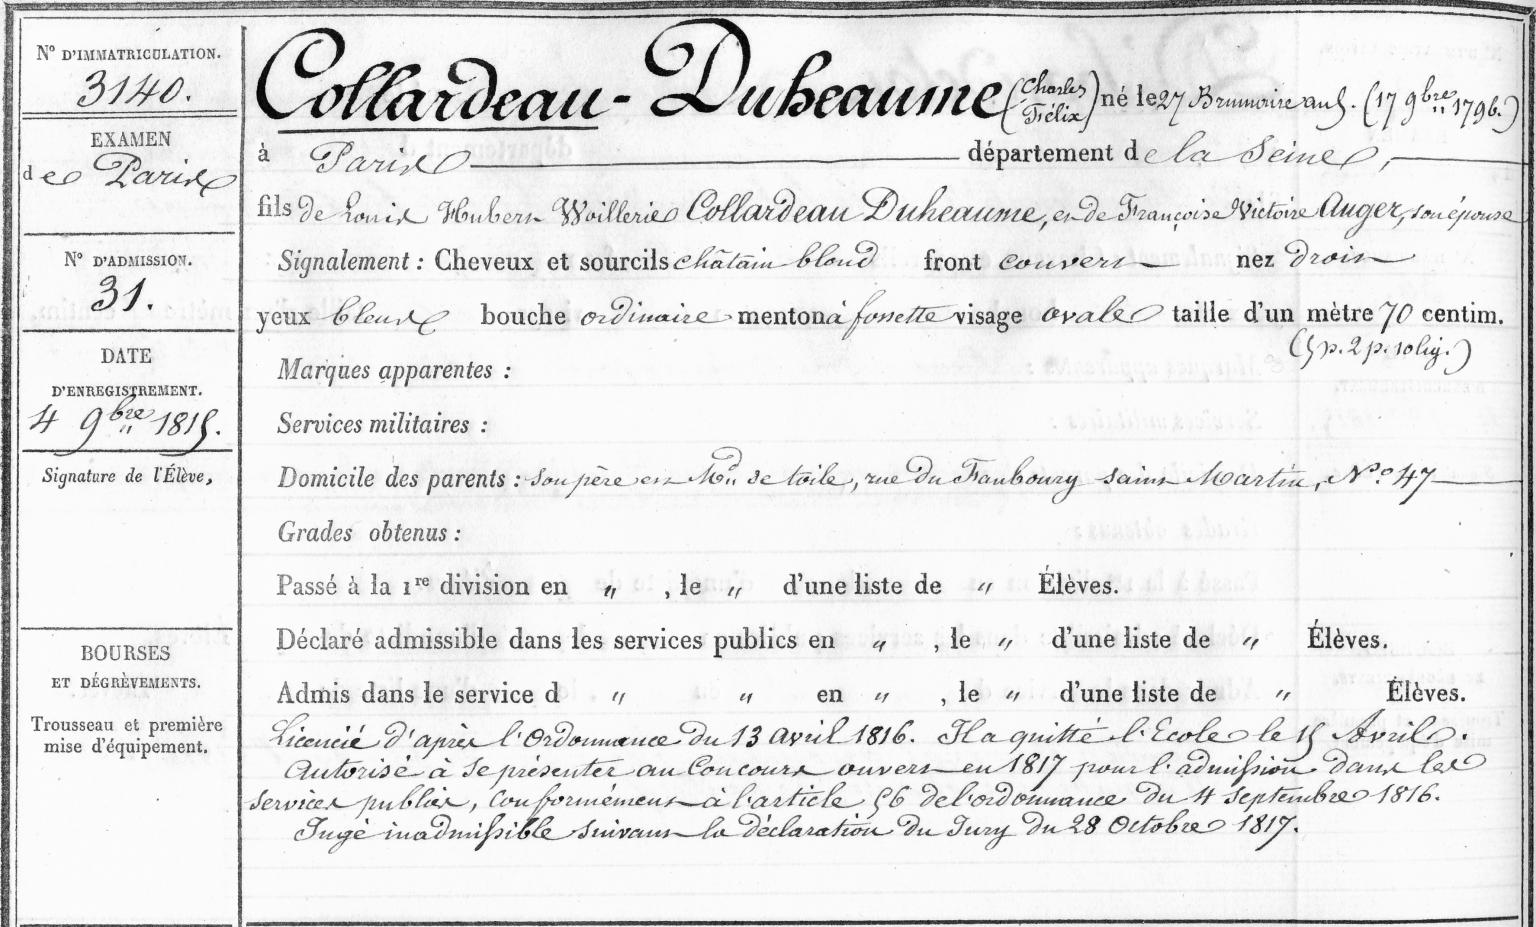 N° D'IMMATRICULATION.
3140.
EXAMEN
de Paris
N° D'ADMISSION.
31.
DATE
D'ENREGISTREMENT.
4 9bre 1815.
Signature de l'Élève,
BOURSES
ET DÉGRÈVEMENTS.
Trousseau et première
mise d'équipement.
Collardeau-Duheaume (Charles Félix) né le 27 Brumaire an 5. (17 9bre 1796.)
à Paris département de la Seine,
fils de Louis Hubert Woillerie Collardeau Duheaume, et de Françoise Victoire Auger, son épouse
Signalement : Cheveux et sourcils châtain blond front couvert nez droit
yeux bleus bouche ordinaire menton à fossette visage ovale taille d'un mètre 70 centim.
(5 p. 2 p. 10 lig.)
Marques apparentes :
Services militaires :
Domicile des parents : son père est Md de toile, rue du Faubourg saint Martin, N° 47
Grades obtenus :
Passé à la 1re division en " , le " d'une liste de " Élèves.
Déclaré admissible dans les services publics en " , le " d'une liste de " Élèves.
Admis dans le service d " " en " , le " d'une liste de " Élèves.
Licencié d'après l'Ordonnance du 13 avril 1816. Il a quitté l'Ecole le 15 Avril.
Autorisé à se présenter au Concours ouvert en 1817 pour l'admission dans les
services publics, conformément à l'article 56 de l'ordonnance du 4 septembre 1816.
Jugé inadmissible suivant la déclaration du Jury du 28 Octobre 1817.